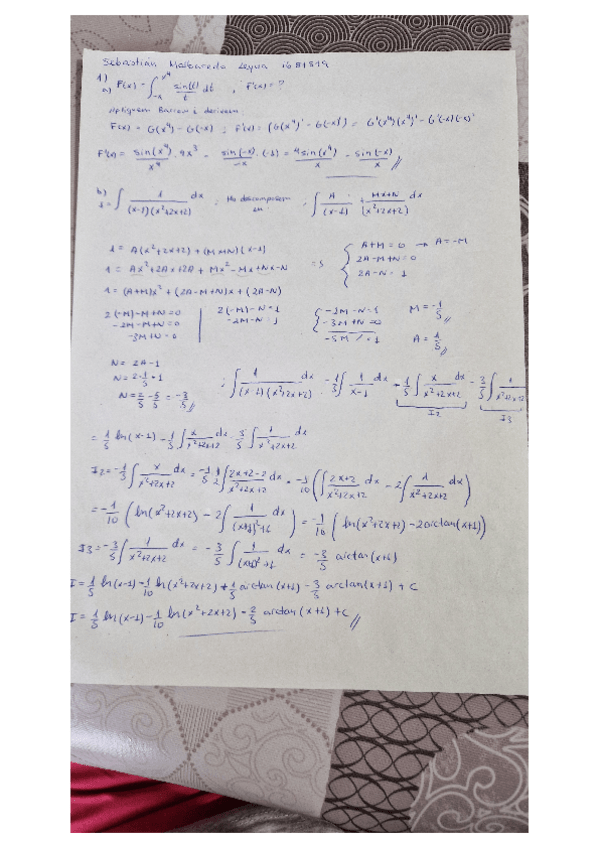 1)
a) F(x) = ∫_{-x}^{x^4} sin(t)/t dt , F'(x) = ?
F(x) = G(x^4) - G(-x) ; F'(x) = (G(x^4)' - G(-x)') = G'(x^4)(x^4)' - G'(-x)(-x)'
F'(x) = sin(x^4)/x^4 · 4x^3 - sin(-x)/-x · (-1) = 4sin(x^4)/x - sin(-x)/x //
b) I = ∫ 1/((x-1)(x^2+2x+2)) dx ; Ho en ; ∫ A/(x-1) + Mx+N/(x^2+2x+2) dx
1 = A(x^2+2x+2) + (Mx+N)(x-1)
1 = Ax^2+2Ax+2A + Mx^2-Mx+Nx-N
1 = (A+M)x^2 + (2A-M+N)x + (2A-N)
A+M = 0 → A = -M
2A-M+N = 0
2A-N = 1
2(-M)-M+N = 0
-2M-M+N = 0
-3M+N = 0
2(-M)-N = 1
-2M-N = 1
-2M-N = 1
-3M+N = 0
-5M / = 1
M = -1/5 //
A = 1/5 //
N = 2A-1
N = 2·1/5-1
N = 2/5 - 5/5 = -3/5 //
; ∫ 1/((x-1)(x^2+2x+2)) dx
I2
I3
= 1/5 ln(x-1) - 1/5 ∫ x/(x^2+2x+2) dx - 3/5 ∫ 1/(x^2+2x+2) dx
I2 = -1/5 ∫ x/(x^2+2x+2) dx = -1/5 · 1/2 ∫ 2x+2-2/(x^2+2x+2) dx = -1/10 ( ∫ 2x+2/(x^2+2x+2) dx - 2∫ 1/(x^2+2x+2) dx )
= -1/10 ( ln(x^2+2x+2) - 2∫ 1/((x+1)^2+1) dx ) = -1/10 ( ln(x^2+2x+2) - 2arctan(x+1) )
I3 = -3/5 ∫ 1/(x^2+2x+2) dx = -3/5 ∫ 1/((x+1)^2+1) dx = -3/5 arctan(x+1)
I = 1/5 ln(x-1) - 1/10 ln(x^2+2x+2) + 1/5 arctan(x+1) - 3/5 arctan(x+1) + C
I = 1/5 ln(x-1) - 1/10 ln(x^2+2x+2) - 2/5 arctan(x+1) + C //